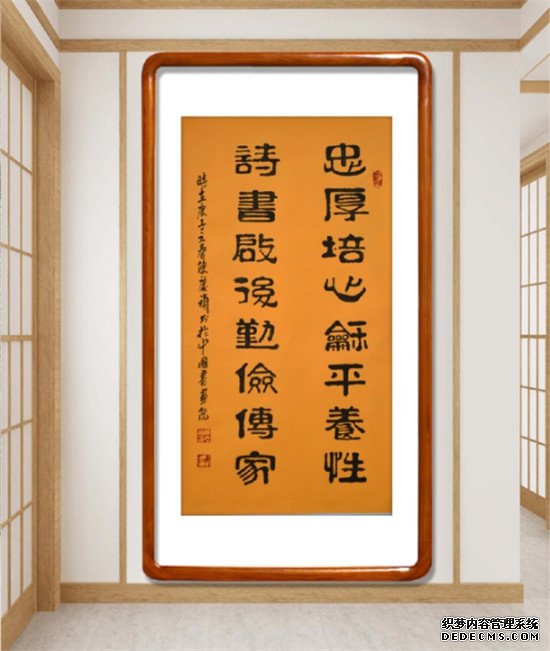 忠厚培心龢平養性
詩書啟後勤儉傳家
時在庚子之春陳書於中國書畫院
织梦内容管理系统
DEDECMS.COM